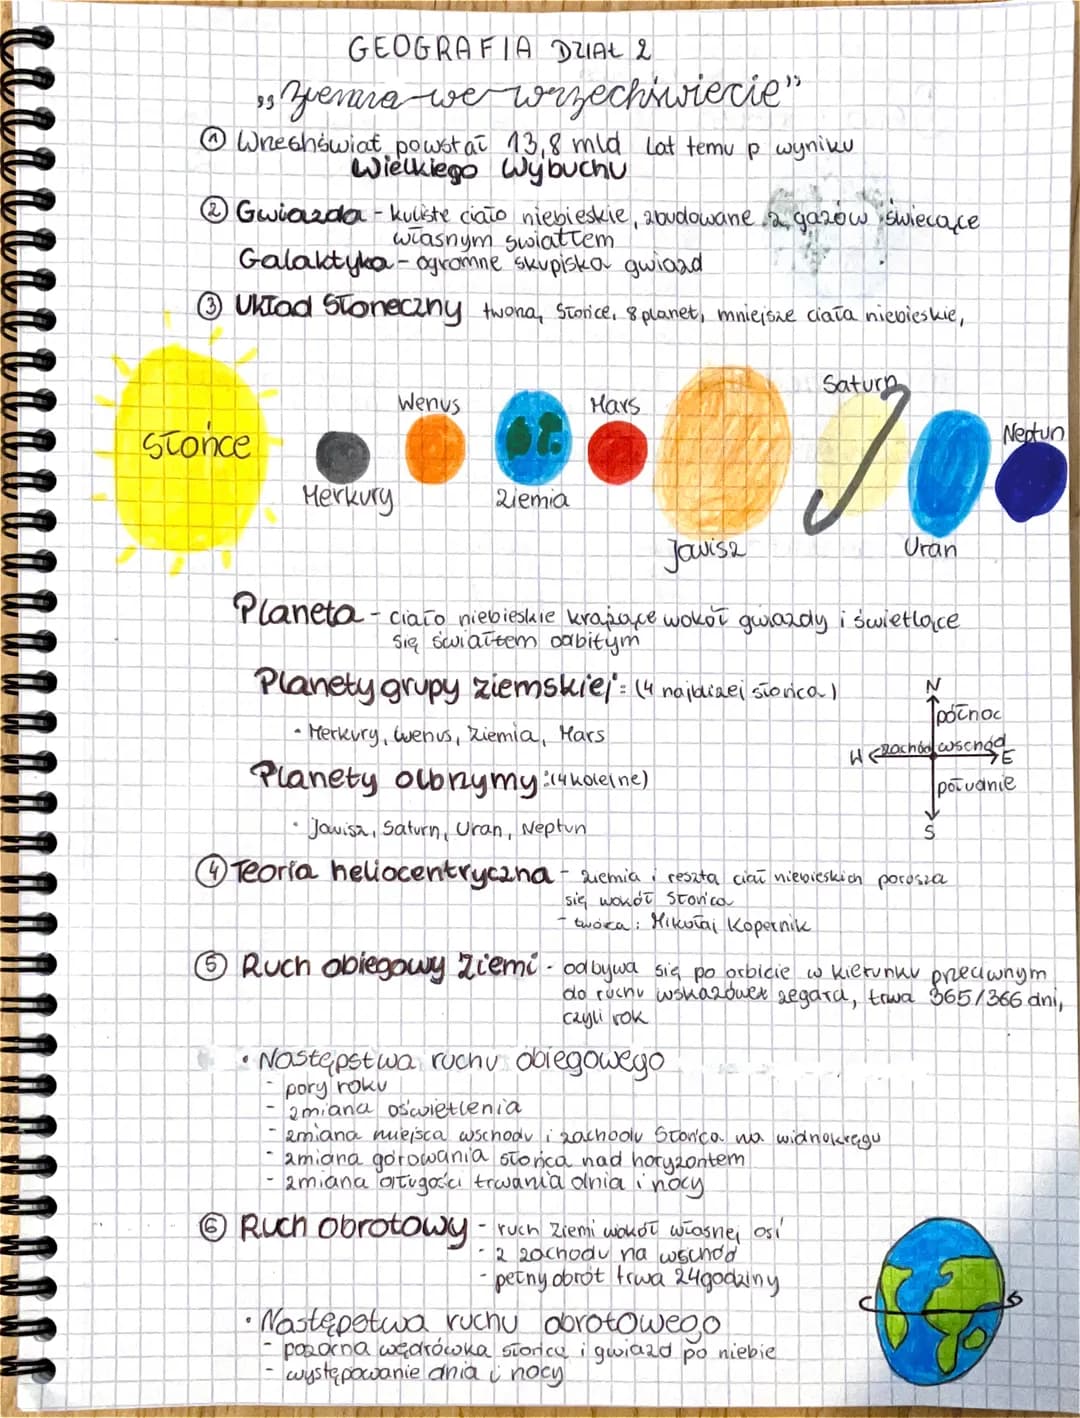 GEOGRAFIA DZIAŁ 2
"Ziemia we wrzechświecie"
① Wrzechświat powstał 13,8 mld lat temu p wyniku
Wielkiego Wybuchu
② Gwiazda - kuliste ciało niebieskie, zbudowane z gazów świecące
własnym światłem
Galaktyka - ogromne skupiska gwiazd
③ Układ Słoneczny tworzą, Słońce, 8 planet, mniejsze ciała niebieskie,
Słońce
Merkury
Wenus
Ziemia
Mars
Jowisz
Saturn
Uran
Neptun
Planeta - ciało niebieskie krążące wokół gwiazdy i świetlące
się światłem odbitym
Planety grupy ziemskiej: (4 najbliżej słońca)
• Merkury, Wenus, Ziemia, Mars
Planety olbrzymy: (4 kolejne)
• Jowisz, Saturn, Uran, Neptun
N
północ
W zachód wschód E
południe
S
④ Teoria heliocentryczna - ziemia i reszta ciał niebieskich porusza
się wokół Słońca
- twórca: Mikołaj Kopernik
⑤ Ruch obiegowy Ziemi - odbywa się po orbicie w kierunku przeciwnym
do ruchu wskazówek zegara, trwa 365/366 dni,
czyli rok
• Następstwa ruchu obiegowego
- pory roku
- zmiana oświetlenia
- zmiana miejsca wschodu i zachodu Słońca na widnokręgu
- zmiana górowania słońca nad horyzontem
- zmiana długości trwania dnia i nocy
⑥ Ruch obrotowy - ruch Ziemi wokół własnej osi
- z zachodu na wschód
- pełny obrót trwa 24godziny
• Następstwa ruchu obrotowego
- pozorna wędrówka słońca i gwiazd po niebie
- występowanie dnia i nocy